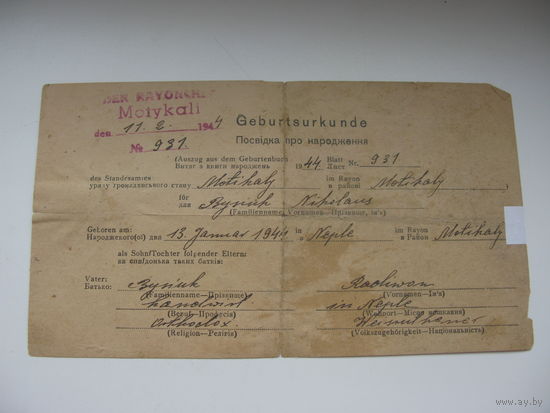 DER RAYONCHEF
Motykali
den 11.2. 1944
№ 931
Geburtsurkunde
Посвідка про народження
(Auszug aus dem Geburtenbuch 1944 Blatt Nr. 931
Витяг з книги народжень Лист
des Standesamtes Motikaly im Rayon Motikaly
уряду громадянського стану в районі
für Nikolaus
для
(Familienname, Vornamen—Прізвище, ім'я)
Geboren am: 13. Januar 1944 in Neple im Rayon Motikaly
Народжено(ої) дня в в Район
als Sohn/Tochter folgender Eltern:
як син/донька таких батків:
Vater:
Батько:
(Familienname—Прізвище) (Vornamen—Ім'я)
Landwirt in Neple
(Beruf—Професія) (Wohnort—Місце мешкання)
Orthodox Weissruthene
(Religion—Релігія) (Volkszugehörigkeit—Національність)
www.ay.by